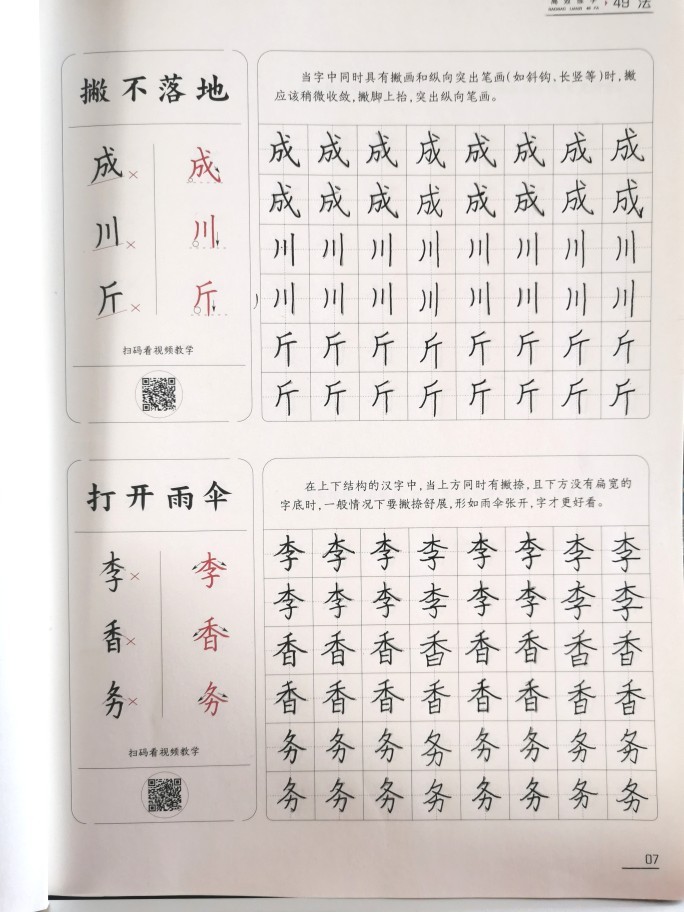 49 法
撇不落地
当字中同时具有撇画和纵向突出笔画(如斜钩、长竖等)时,撇
应该稍微收敛,撇脚上抬,突出纵向笔画。
成× 成
川× 川
斤× 斤
扫码看视频教学
成成成成成成成成
成成成成成成成成
川川川川川川川川
川川川川川川川川
斤斤斤斤斤斤斤斤
斤斤斤斤斤斤斤斤
打开雨伞
在上下结构的汉字中,当上方同时有撇捺,且下方没有扁宽的
字底时,一般情况下要撇捺舒展,形如雨伞张开,字才更好看。
李× 李
香× 香
务× 务
扫码看视频教学
李李李李李李李李
李李李李李李李李
香香香香香香香香
香香香香香香香香
务务务务务务务务
务务务务务务务务
07